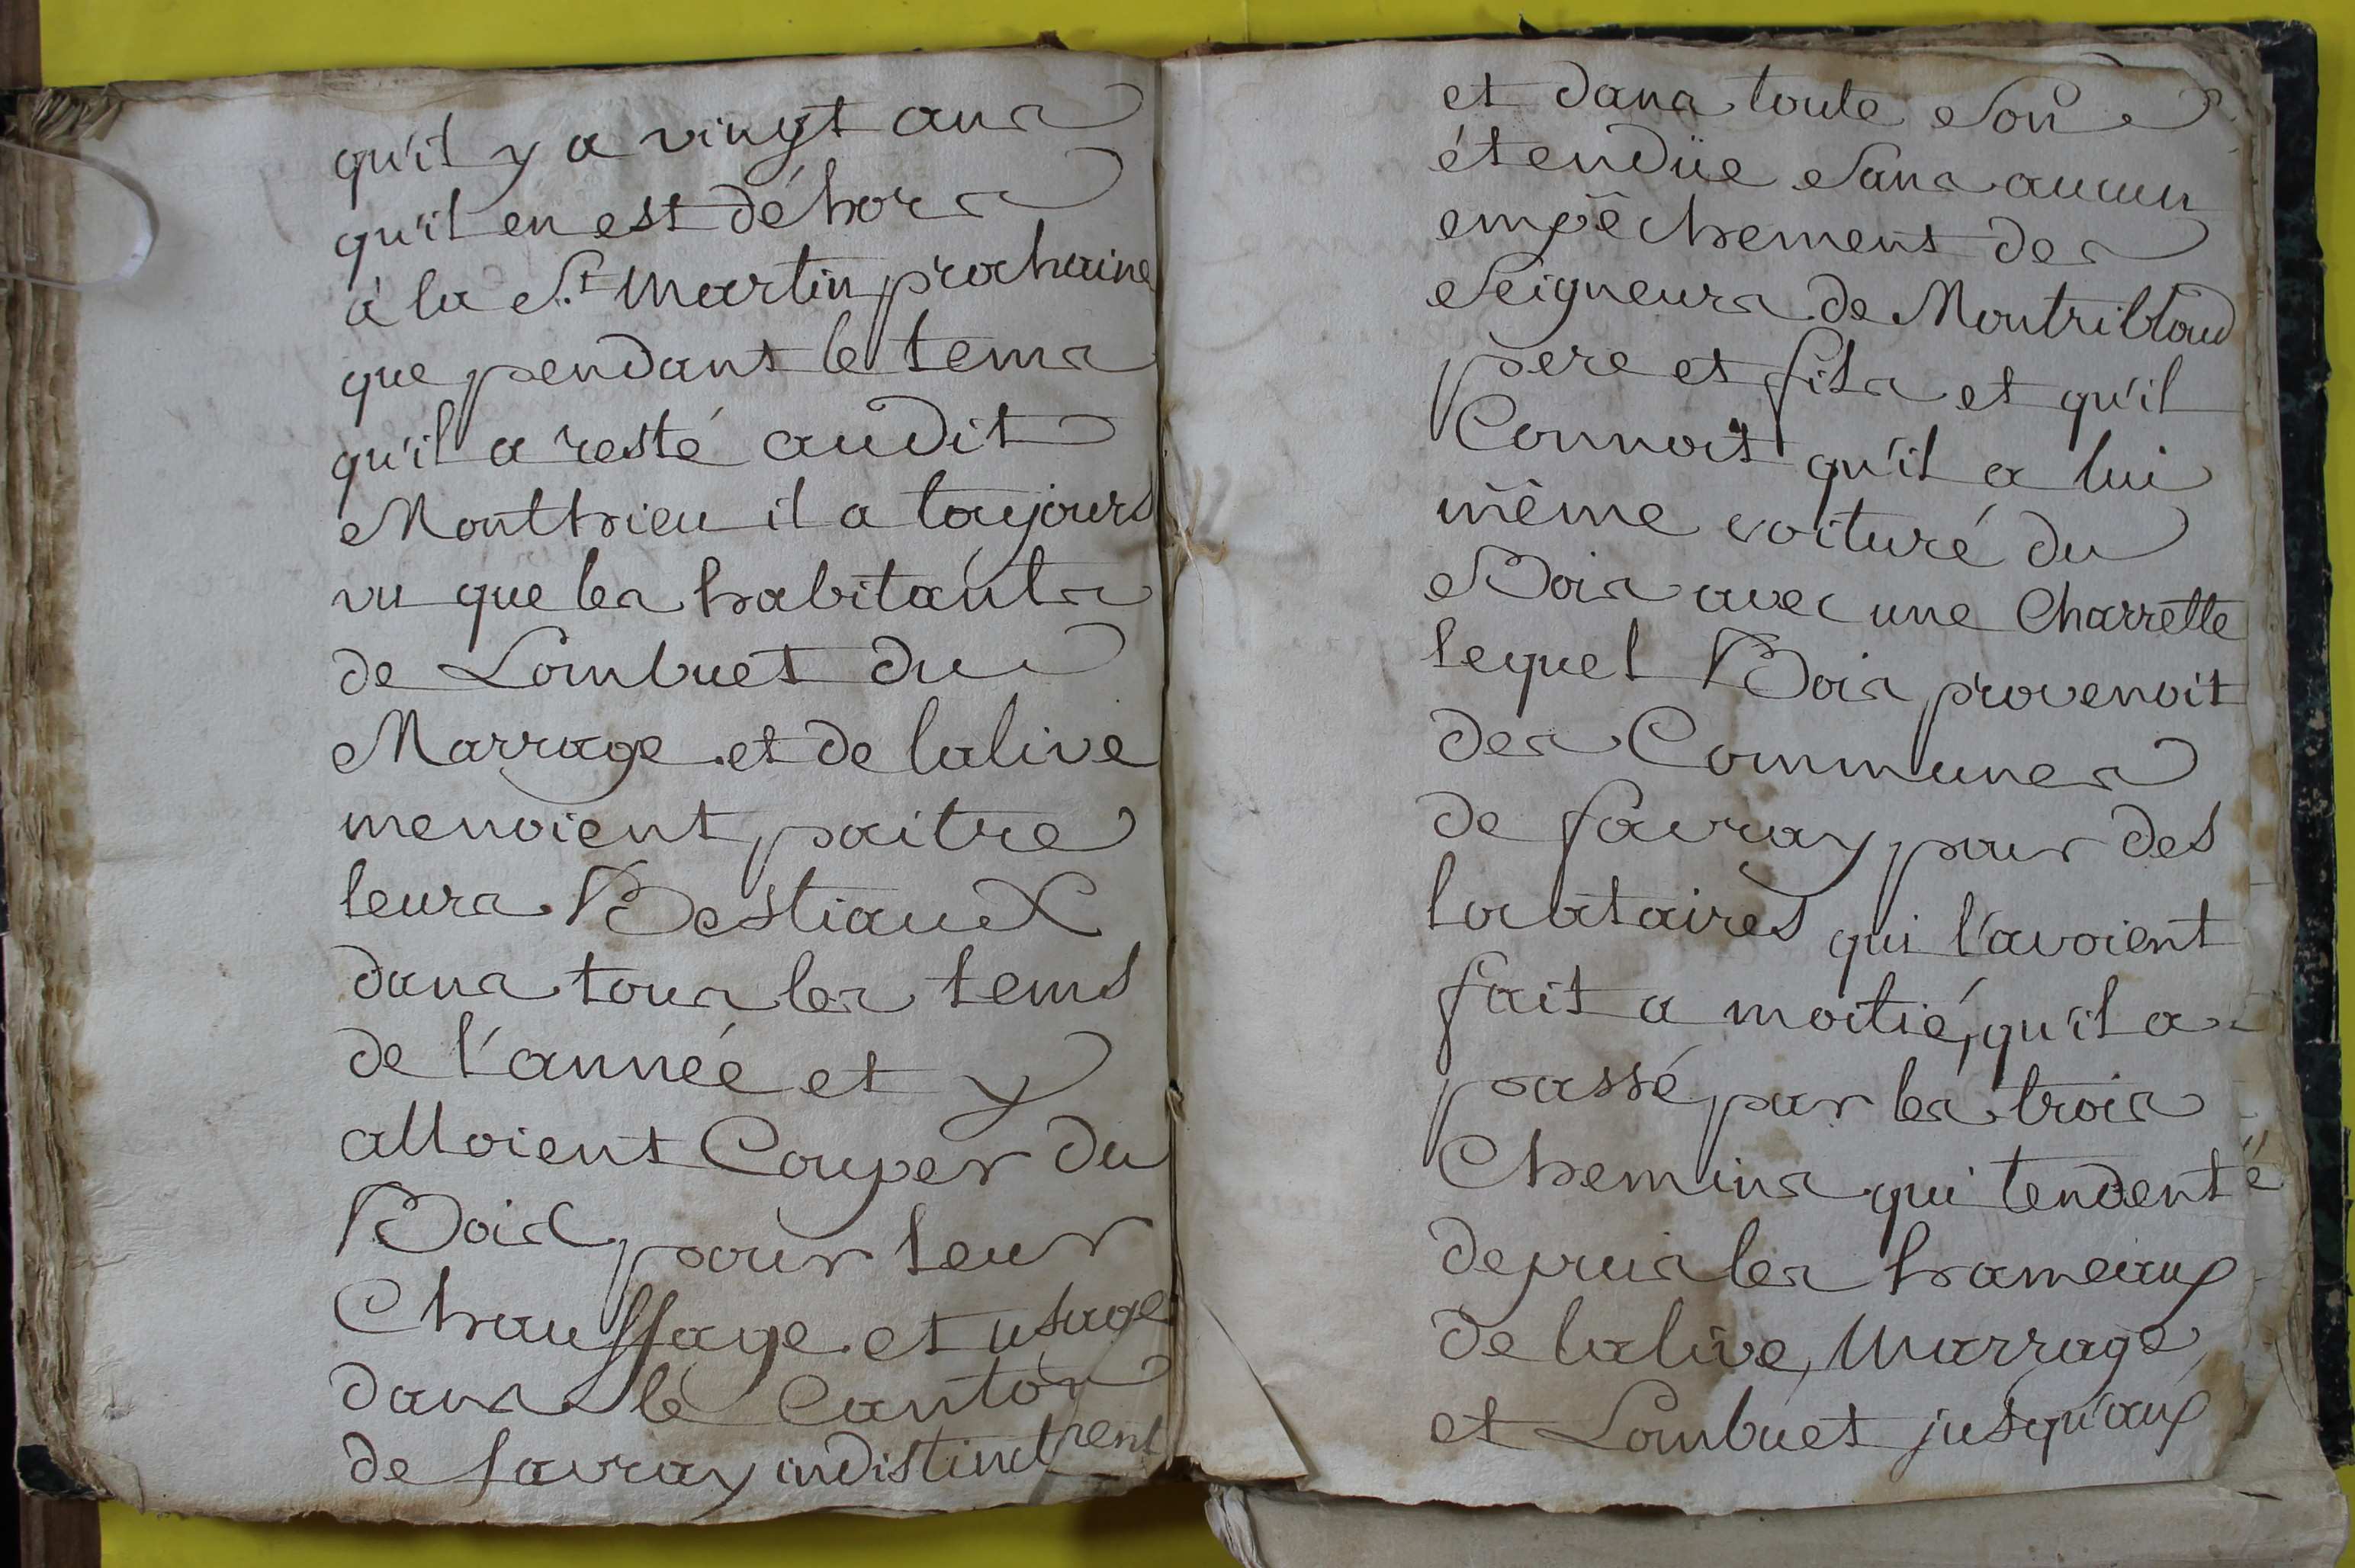 qu'il y a vingt ans
qu'il en est déhors
à la St Martin prochaine
que pendant le tems
qu'il a resté audit
Monthieu il a toujours
vu que les habitants
de Lombuet du
Marrage et de lalive
menoient paitre
leurs Bestiaux
dans tous les tems
de l'année et y
alloient Couper du
Bois pour leur
Chauffage et usage
dans le Canton
de favray indistinctment
et dans toute son
étendüe sans aucun
empêchement des
Seigneurs de Montribloud
pere et fils et qu'il
Connoit qu'il a lui
même voituré du
Bois avec une Charrette
lequel Bois provenoit
des Communes
de favray pour des
locataires qui l'avoient
fait a moitié, qu'il a
passé par les trois
Chemins qui tendent
depuis les hameaux
de lalive, Marrage
et Lombuet jusqu'aux